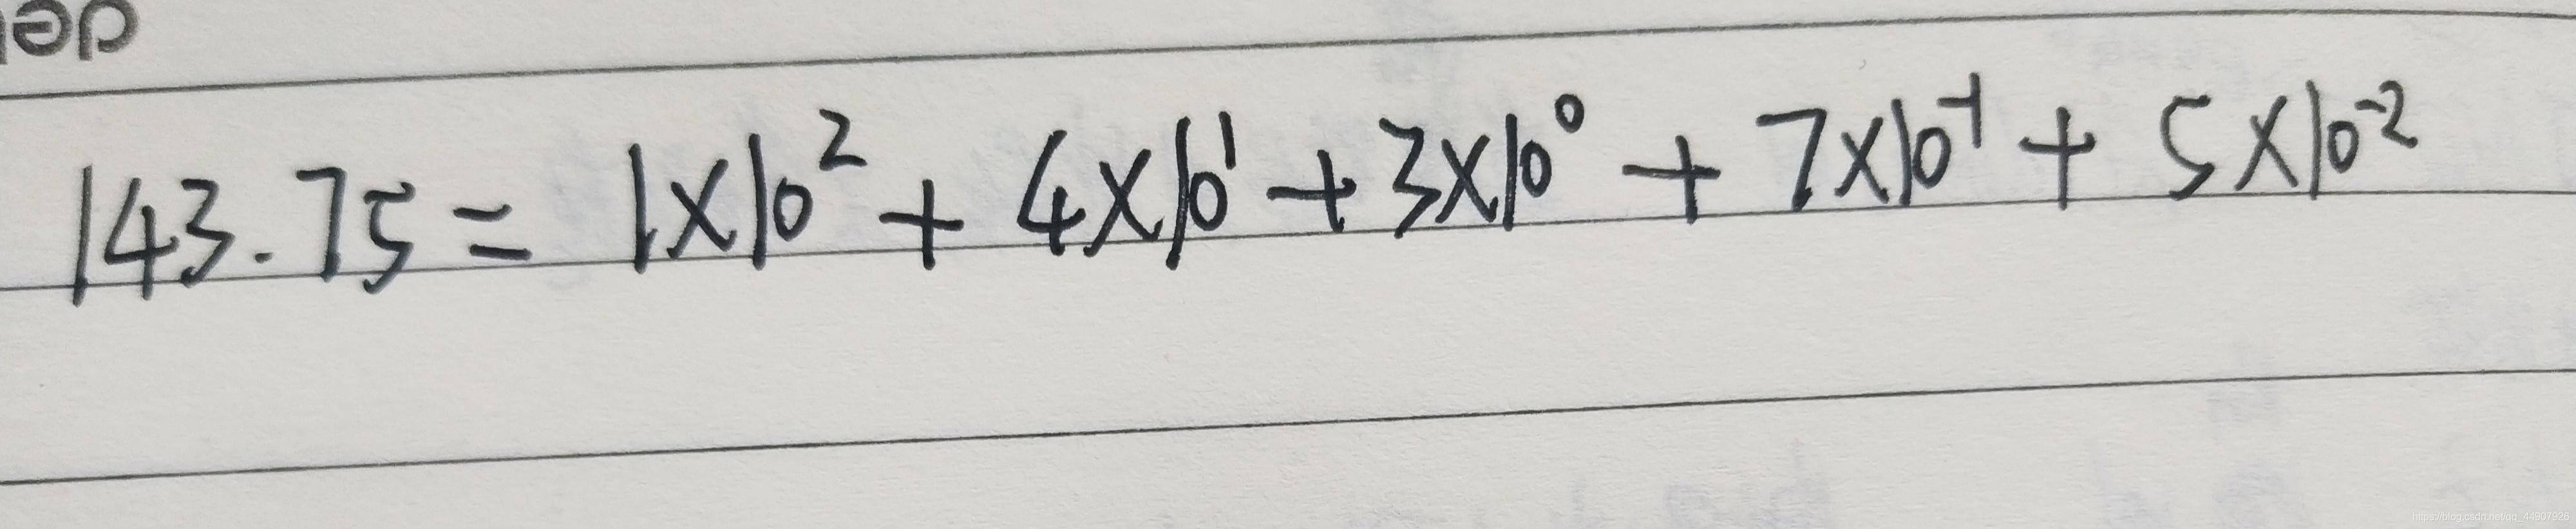 del
143.75 = 1×10² + 4×10¹ + 3×10⁰ + 7×10⁻¹ + 5×10⁻²
https://blog.csdn.net/qq_44907926